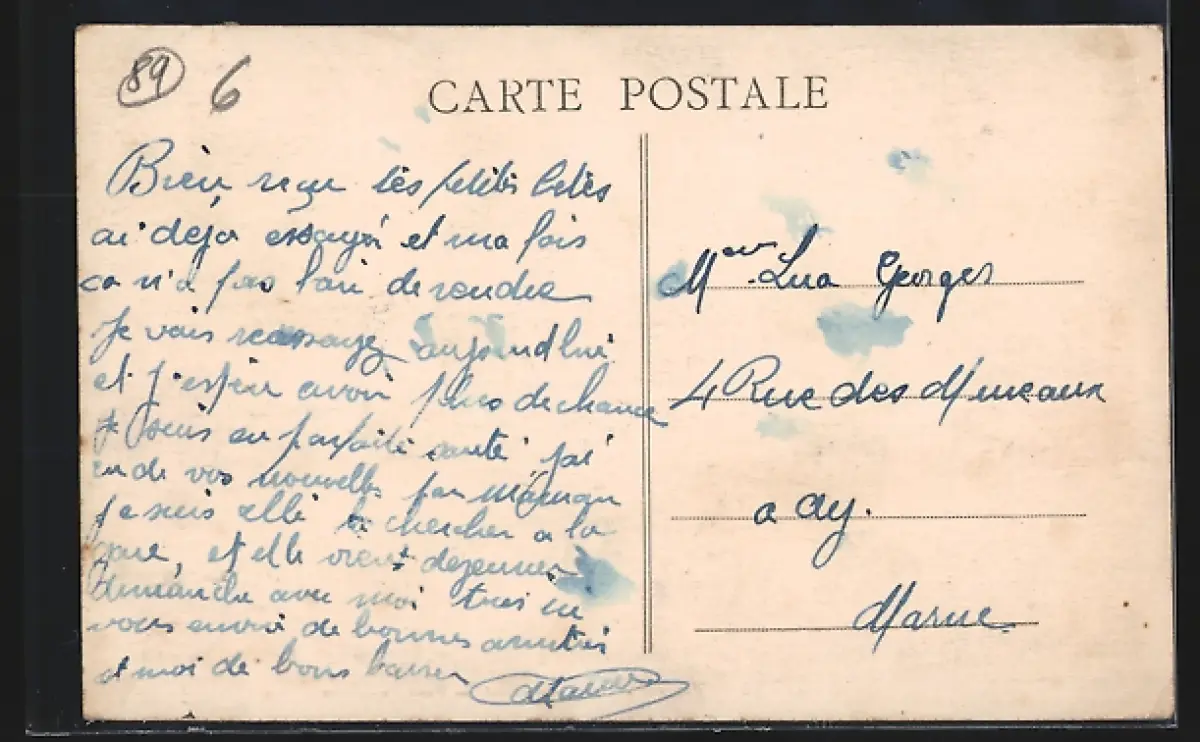 89 6
CARTE POSTALE
Bien reçu les petites
ai deja essayé et ma fois
ca n'a pas l'air de rendre
Je vais reessayez aujourd'hui
et j'espère avoir plus de chance
Je suis en parfaite santé j'ai
eu de vos nouvelles par maman
je suis allé la chercher a la
gare, et elle vient dejeuner
dimanche avec moi
vous envoie de bonnes amitiés
et moi de bons baisers
Georges
4 Rue des
a Ay.
Marne